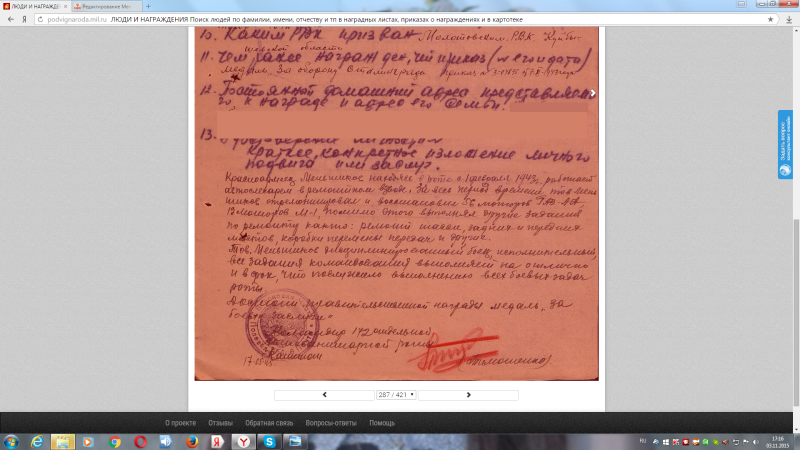 ЛЮДИ И НАГРАЖДЕНИ
Редактирование Мо
podvignaroda.mil.ru ЛЮДИ И НАГРАЖДЕНИЯ Поиск людей по фамилии, имени, отчеству и тп в наградных листах, приказах о награждениях и в картотеке
10. Каким РВК призван Молотовским РВК Куйбы-
шевской области
11. Чем ранее награжден, чей приказ (№ его и дата)
медаль За оборону Сталинграда приказ №
12. Постоянный домашний адрес представляем
к награде и адрес его семьи:
13.
Краткое, конкретное изложение личного
подвига или заслуг.
Красноармеец Меньшиков находясь в роте с 1 февраля 1943г. работает
автослесарем в ремонтном взводе. За все период времени тов. Мень-
шиков отремонтировал и восстановил 56 моторов ГАЗ-АА
моторов М-1, помимо этого выполнял другие задания
по ремонту как-то: ремонт шасси, задних и передних
мостов, коробки перемены передач и других.
Тов. Меньшиков дисциплинированный боец, исполнительный,
все задания командования выполняет на отлично
и в срок, что послужило выполнению всех боевых задач
роты.
Достоин правительственной награды медаль „За
боевые заслуги"
Командир 142 отдельной
роты
Капитан
(Тимошенко)
287 / 421
Задать вопрос
О проекте Отзывы Обратная связь Вопросы-ответы Помощь
RU
17:16
03.11.2015